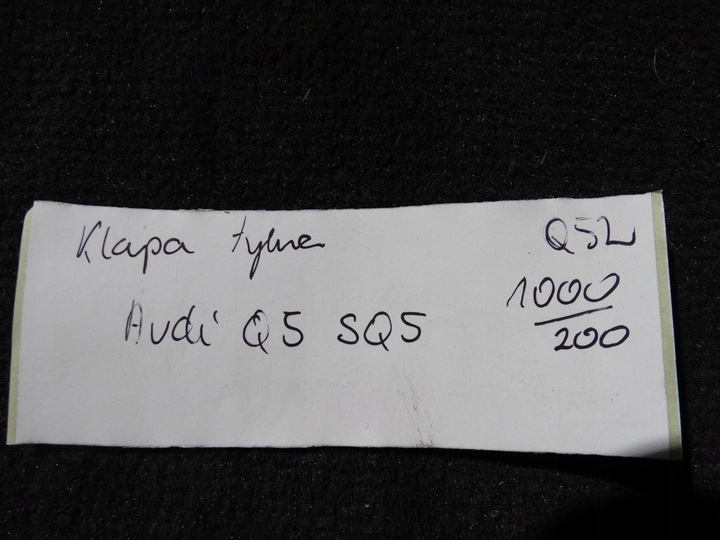 Klapa tylna Q5L
Audi Q5 SQ5 1000
200